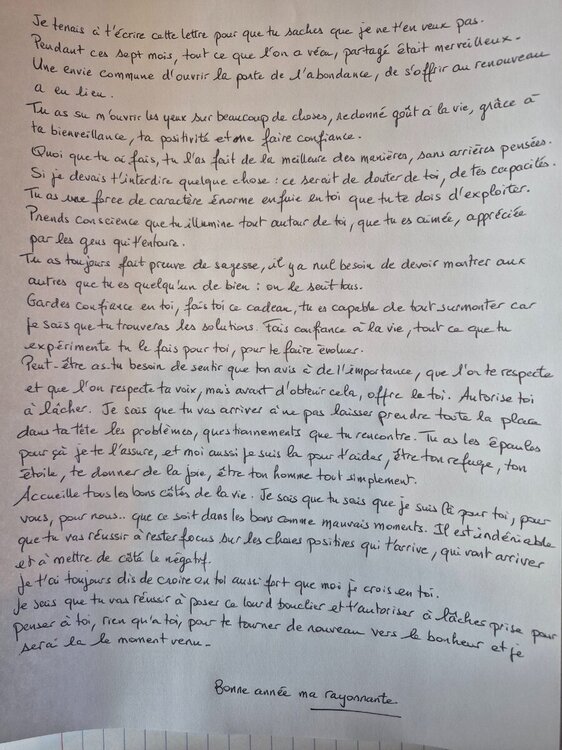 Je tenais à t'écrire cette lettre pour que tu saches que je ne t'en veux pas.
Pendant ces sept mois, tout ce que l'on a vécu, partagé était merveilleux.
Une envie commune d'ouvrir la porte de l'abondance, de s'offrir au renouveau
a eu lieu.
Tu as su m'ouvrir les yeux sur beaucoup de choses, redonné goût à la vie, grâce à
ta bienveillance, ta positivité et me faire confiance.
Quoi que tu ai fais, tu l'as fait de la meilleure des manières, sans arrières pensées.
Si je devais t'interdire quelque chose : ce serait de douter de toi, de tes capacités.
Tu as une force de caractère énorme enfuie en toi que tu te dois d'exploiter.
Prends conscience que tu illumine tout autour de toi, que tu es aimée, appréciée
par les gens qui t'entoure.
Tu as toujours fait preuve de sagesse, il y a nul besoin de devoir montrer aux
autres que tu es quelqu'un de bien : on le sait tous.
Gardes confiance en toi, fais toi ce cadeau, tu es capable de tout surmonter car
je sais que tu trouveras les solutions. Fais confiance à la vie, tout ce que tu
expérimente tu le fais pour toi, pour te faire évoluer.
Peut-être as-tu besoin de sentir que ton avis à de l'importance, que l'on te respecte
et que l'on respecte ta voix, mais avant d'obtenir cela, offre le toi. Autorise toi
à lâcher. Je sais que tu vas arriver à ne pas laisser prendre toute la place
dans ta tête les problèmes, questionnements que tu rencontre. Tu as les épaules
pour çà je te l'assure, et moi aussi je suis la pour t'aider, être ton refuge, ton
étoile, te donner de la joie, être ton homme tout simplement.
Accueille tous les bons côtés de la vie. Je sais que tu sais que je suis là pour toi, pour
vous, pour nous.. que ce soit dans les bons comme mauvais moments. Il est indéniable
que tu vas réussir à rester focus sur les choses positives qui t'arrive, qui vont arriver
et à mettre de côté le négatif.
Je t'ai toujours dis de croire en toi aussi fort que moi je crois en toi.
Je sens que tu vas réussir à poser ce lourd bouclier et t'autoriser à lâcher prise pour
penser à toi, rien qu'a toi, pour te tourner de nouveau vers le bonheur et je
serai la le moment venu.
Bonne année ma rayonnante